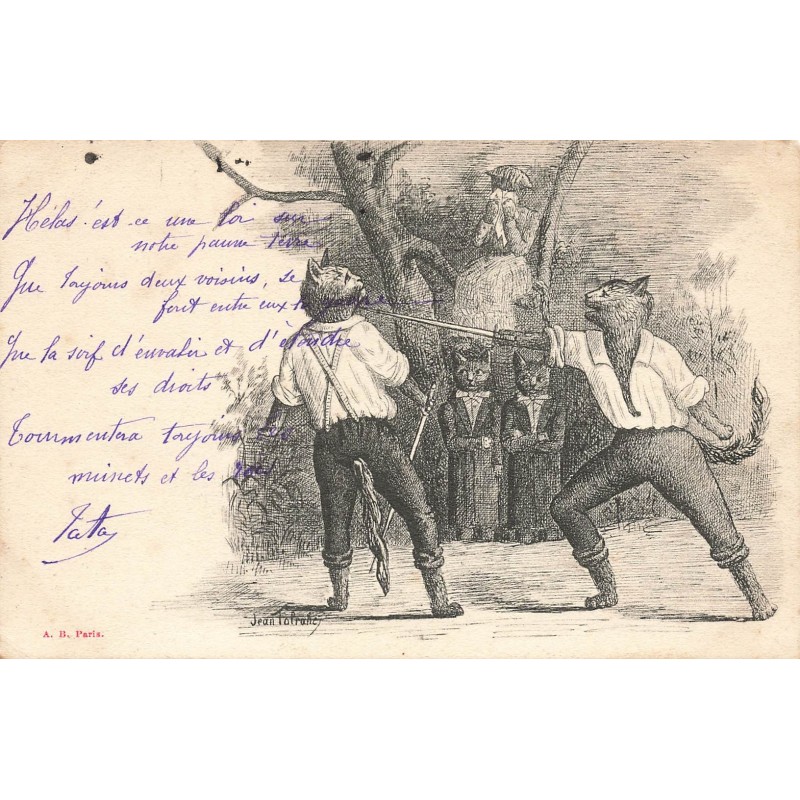 Hélas. est ce une loi sur
notre pauvre terre
Que toujours deux voisins, se
font entre eux la guerre
Que la soif d'envahir et d'étendre
ses droits
Tourmentera toujours les
minets et les rois
Tata
Jean
A. B. Paris.